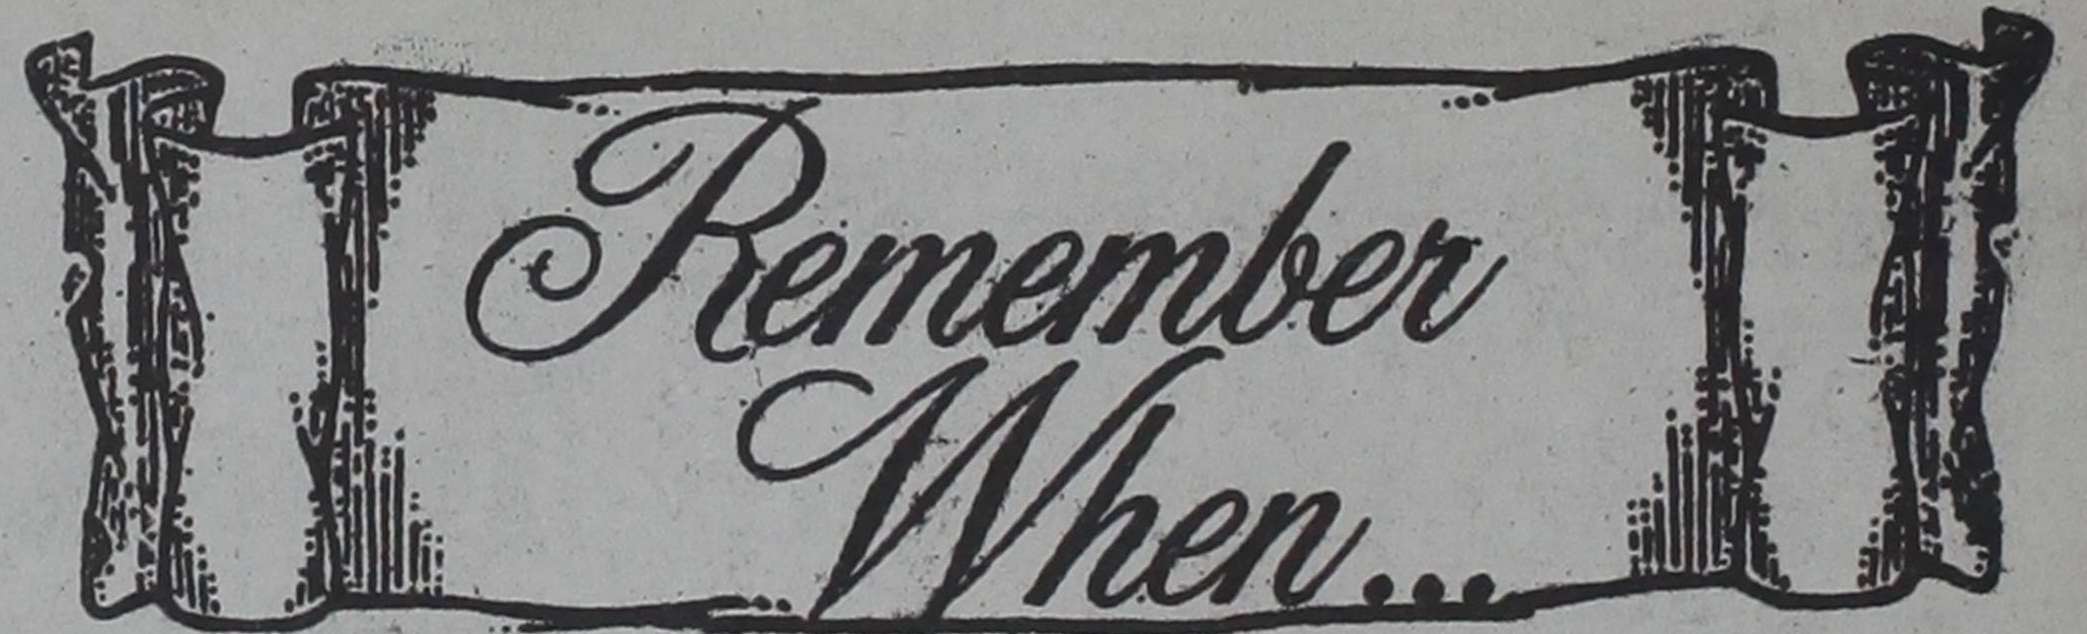 Remember
When...